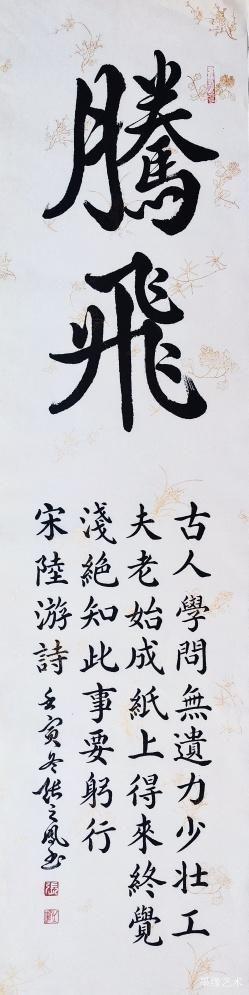 騰飛
古人學問無遺力少壯工
夫老始成紙上得來終覺
淺絕知此事要躬行
宋陸游詩
壬寅冬張之鳳書
張
墨缘艺术